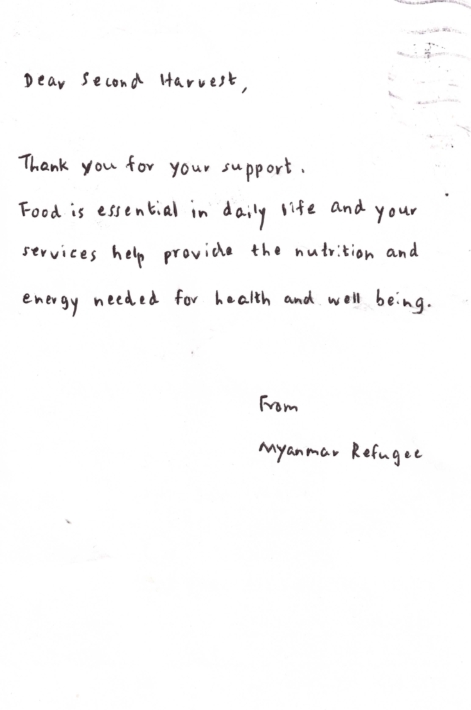 Dear Second Harvest,
Thank you for your support.
Food is essential in daily life and your
services help provide the nutrition and
energy needed for health and well being.
From
Myanmar Refugee